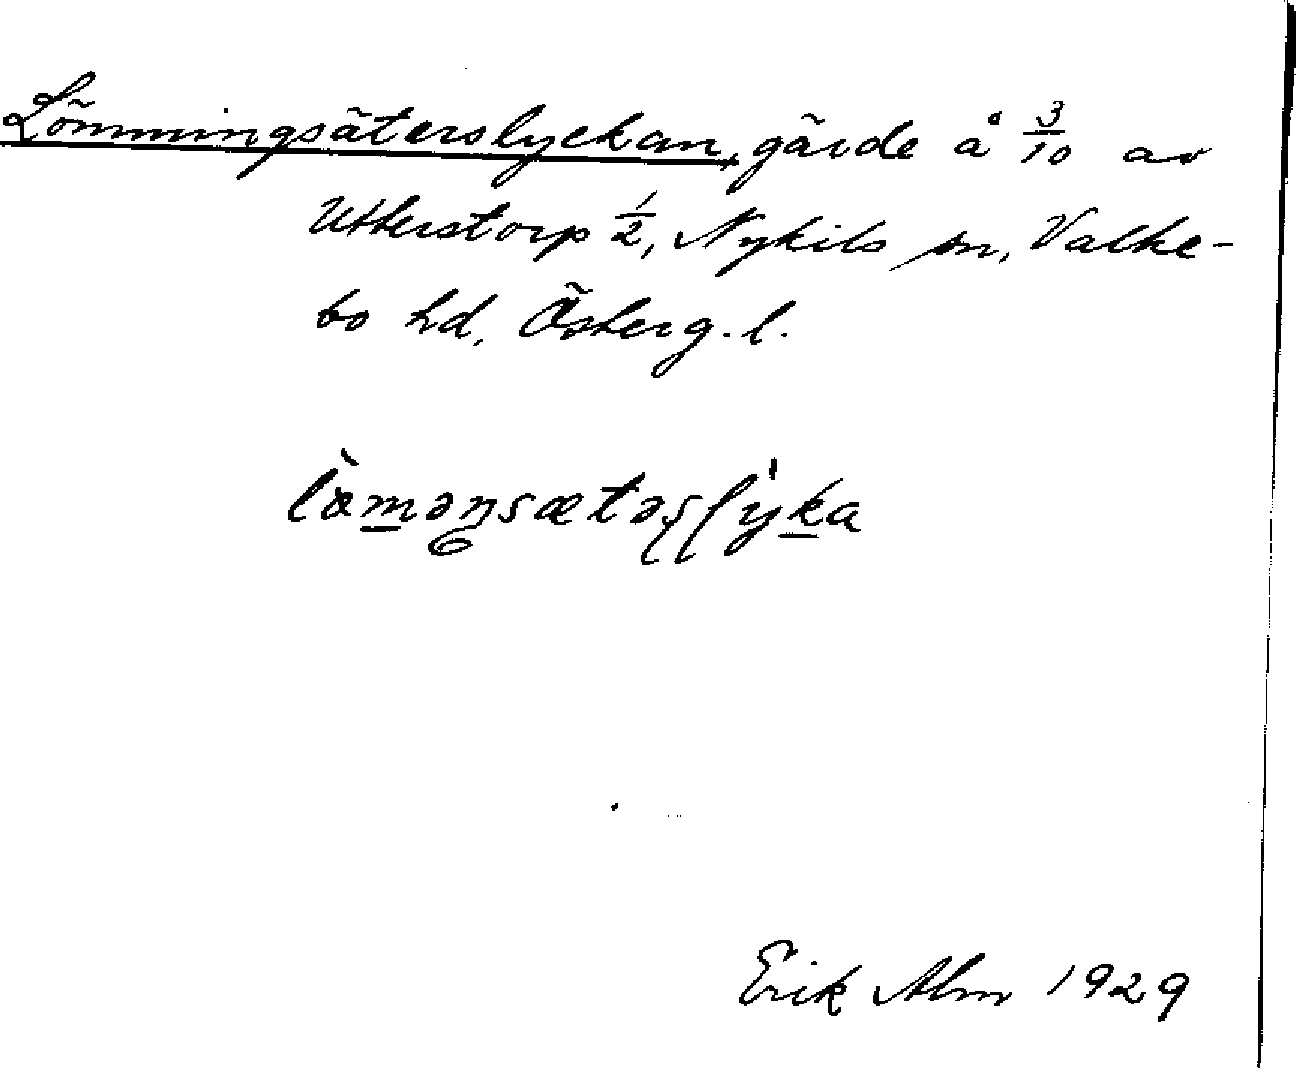 Lömmingsäterslyckan, gärde å 3/10 av
Utterstorp 1/2, Nykils sn, Valke-
bo hd, Österg. l.
læ̀mənsætəslýka
Erik Alm 1929